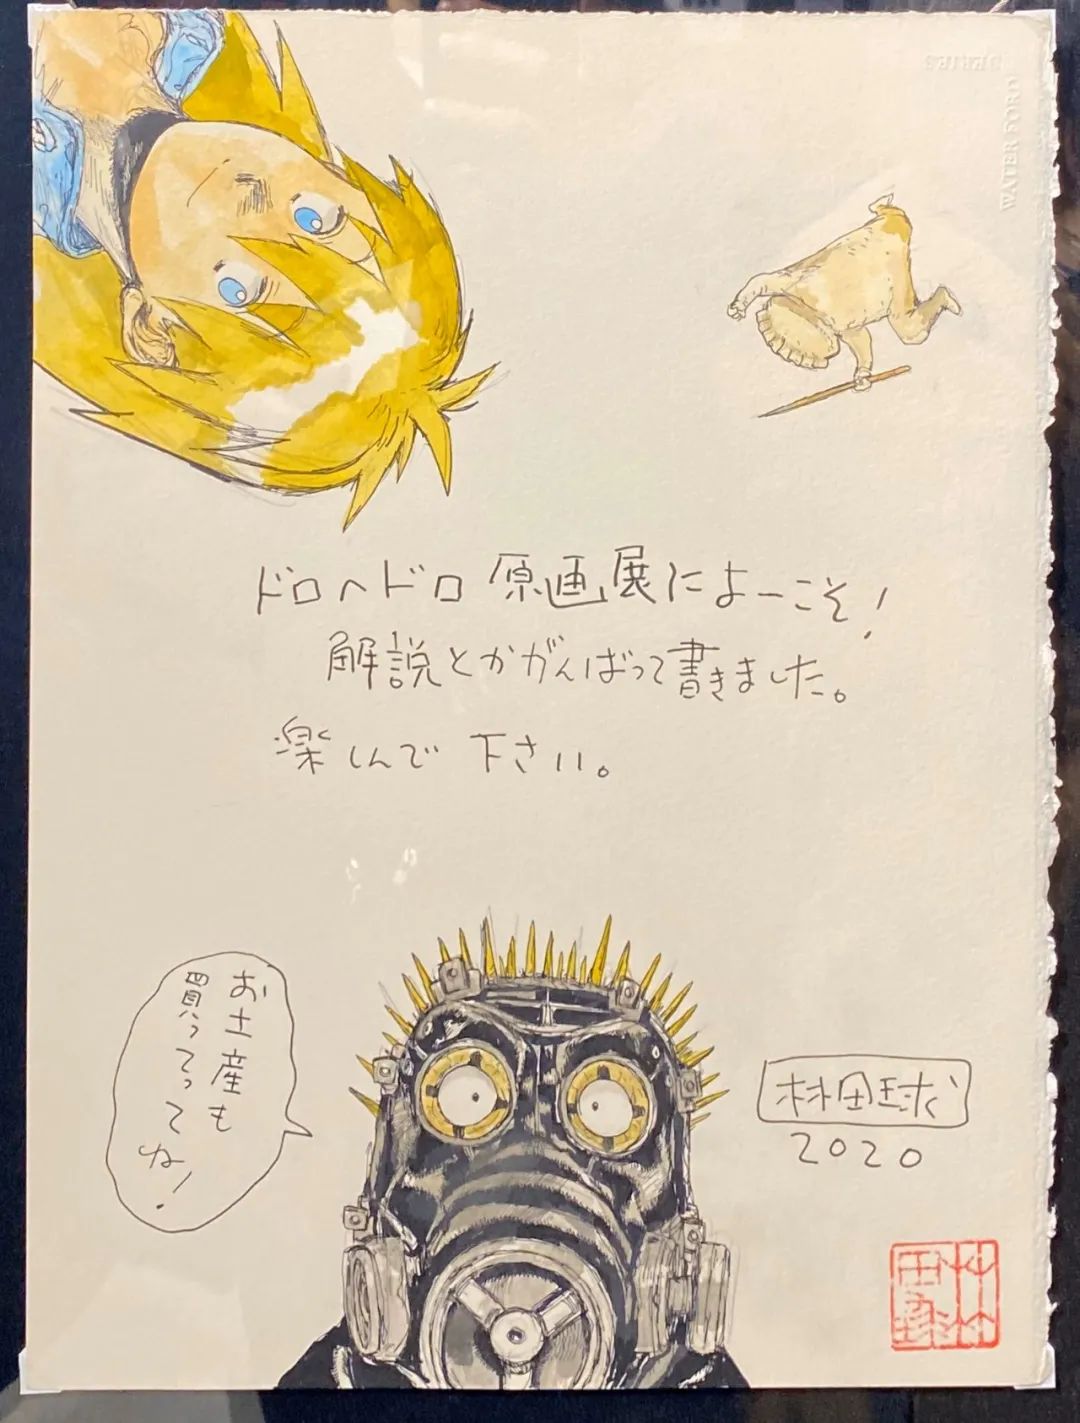 SERIES
WATER FORD
ドロヘドロ 原画展によーこそ!
解説とかがんばって書きました。
楽しんで 下さい。
お土産も
買ってって
ね!
林田球
2020
林田球